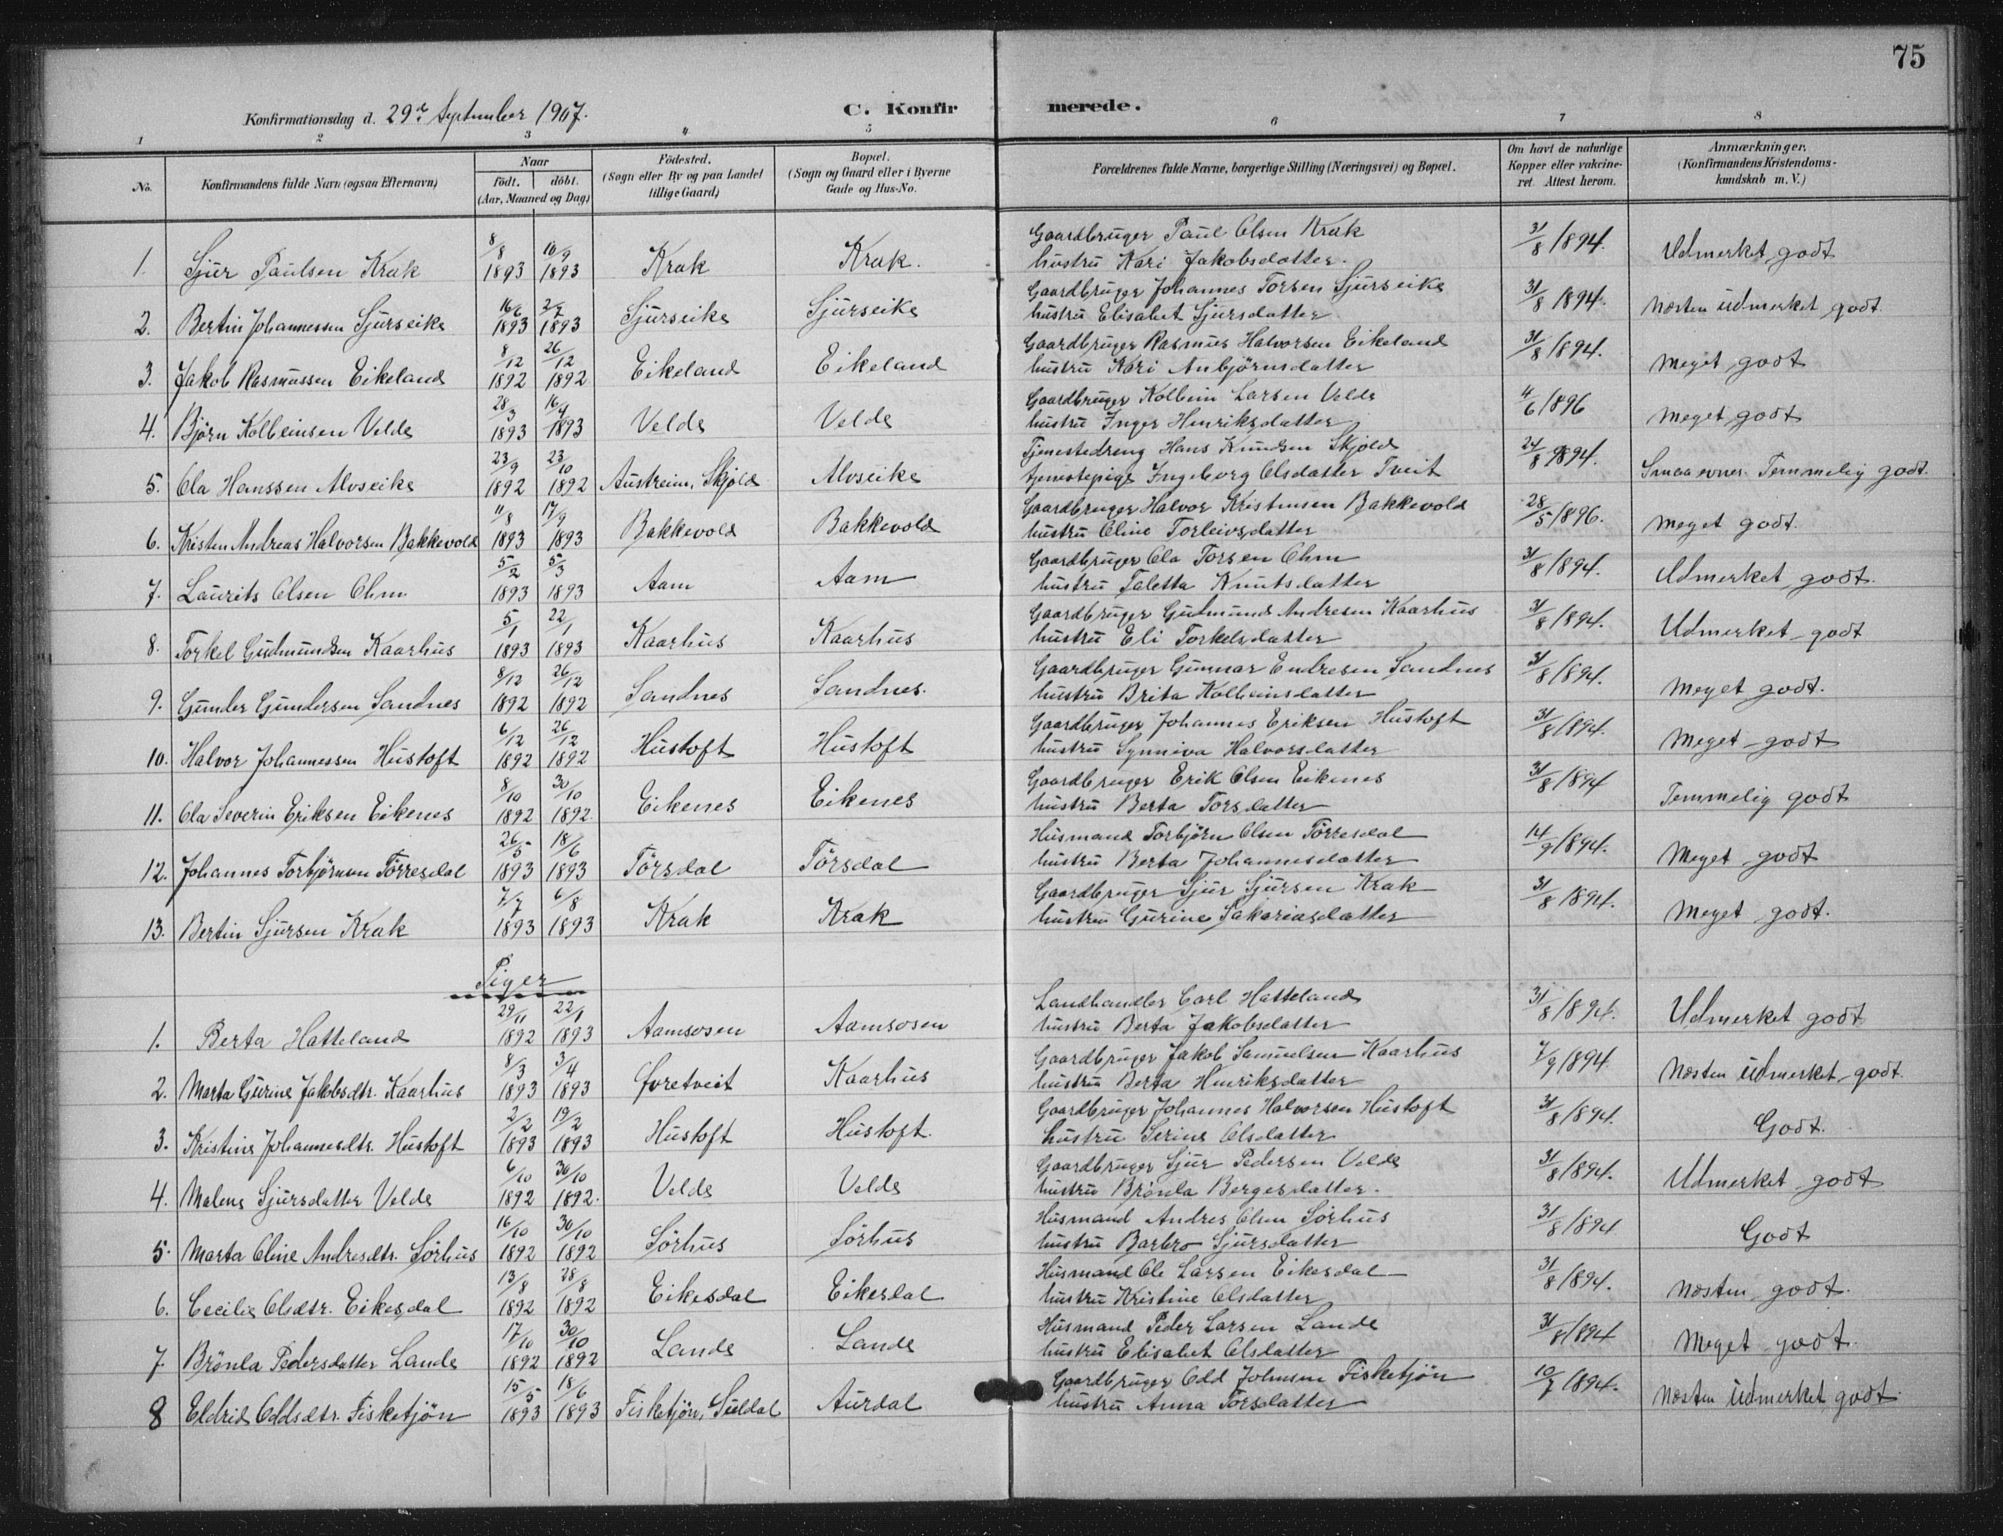 75
Konfirmationsdag d. 29de September 1907.
C. Konfirmerede.
1 2 3 4 5 6 7 8
No.
Konfirmandens fulde Navn (ogsaa Efternavn)
Naar
født. døbt.
(Aar, Maaned og Dag)
Fødested.
(Sogn eller By og paa Landet
tillige Gaard)
Bopæl.
(Sogn og Gaard eller i Byerne
Gade og Hus-No.
Forældrenes fulde Navne, borgerlige Stilling (Næringsvei) og Bopæl.
Om havt de naturlige
Kopper eller vakcine-
ret Attest herom.
Anmærkninger.
(Konfirmandens Kristendoms-
kundskab m. V.)
1. Sjur Paulsen Krak 8/8 1893 10/9 1893 Krak Krak. Gaardbruger Paul Olsen Krak 31/8 1894. Udmerket godt
hustru Kari Jakobsdatter.
2. Bertin Johannessen Sjurseike 16/6 1893 2/7 1893 Sjurseike Sjurseike Gaardbruger Johannes Torsen Sjurseike 31/8 1894. Næsten udmerket godt.
hustru Elisabet Sjursdatter
3. Jakob Rasmussen Eikeland 8/12 1892 26/12 1892 Eikeland Eikeland Gaardbruger Rasmus Halvorsen Eikeland 31/8 1894. Meget godt
hustru Kari Anbjørnsdatter
4. Bjørn Kolbeinsen Velde 28/3 1893 16/4 1893 Velde Velde Gaardbruger Kolbein Larsen Velde 4/6 1896 Meget godt
hustru Inger Henriksdatter
5. Ola Hanssen Alvseike 23/9 1892 23/10 1892 Austreim, Skjold Alvseike Tjenestedreng Hans Knudsen Skjold 24/8 1894. Smaa evner. Temmelig godt.
tjenestepige Ingeborg Olsdatter Tveit
6. Kristen Andreas Halvorsen Bakkevold 11/8 1893 17/9 1893 Bakkevold Bakkevold Gaardbruger Halvor Kristensen Bakkevold 28/5 1896. Meget godt.
hustru Oline Torleivsdatter
7. Laurits Olsen Ohm 5/2 1893 5/3 1893 Aam Aam Gaardbruger Ola Torsen Ohm 31/8 1894. Udmerket godt.
hustru Taletta Knutsdatter
8. Torkel Gudmundsen Kaarhus 5/1 1893 22/1 1893 Kaarhus Kaarhus Gaardbruger Gudmund Andresen Kaarhus 31/8 1894. Udmerket godt
hustru Eli Torkelsdatter
9. Gunder Gundersen Sandnes 8/12 1892 26/12 1892 Sandnes Sandnes. Gaardbruger Gunnar Endresen Sandnes 31/8 1894. Meget godt.
hustru Brita Kolbeinsdatter
10. Halvor Johannessen Hustoft 6/12 1892 26/12 1892 Hustoft Hustoft Gaardbruger Johannes Eriksen Hustoft 31/8 1894. Meget godt
hustru Synneva Halvorsdatter
11. Ola Severin Eriksen Eikenes 8/10 1892 30/10 1892. Eikenes Eikenes Gaardbruger Erik Olsen Eikenes 31/8 1894 Temmelig godt
hustru Berta Torsdatter
12. Johannes Torbjørnsen Tørresdal 26/5 1893 18/6 1893 Tørsdal Tørsdal Husmand Torbjørn Olsen Tørresdal 14/9 1894. Meget godt
hustru Berta Johannesdatter
13. Bertin Sjursen Krak 7/7 1893 6/8 1893 Krak Krak Gaardbruger Sjur Sjursen Krak 31/8 1894. Meget godt.
hustru Gurine Sakariasdatter
Piger
1. Berta Hatteland 29/11 1892 22/1 1893 Aamsosen Aamsosen Landhandler Carl Hatteland 31/8 1894. Udmerket godt
hustru Berta Jakobsdatter
2. Marta Gurine Jakobsdtr. Kaarhus 8/3 1893 3/4 1893 Øvretveit Kaarhus Gaardbruger Jakob Samuelsen Kaarhus 7/9 1894. Næsten udmerket godt.
hustru Berta Henriksdatter
3. Kristine Johannesdtr. Hustoft 2/2 1893 19/2 1893 Hustoft Hustoft. Gaardbruger Johannes Halvorsen Hustoft 31/8 1894. Godt.
hustru Serine Olsdatter
4. Malene Sjursdatter Velde 6/10 1892 30/10 1892. Velde Velde Gaardbruger Sjur Pedersen Velde 31/8 1894. Udmerket godt
hustru Brønla Bergesdatter.
5. Marta Oline Andresdtr. Sørhus 16/10 1892 30/10 1892 Sørhus Sørhus Husmand Andres Olsen Sørhus 31/8 1894 Godt
hustru Barbro Sjursdatter
6. Cecilie Olsdtr. Eikesdal 13/8 1892 28/8 1892 Eikesdal Eikesdal Husmand Ole Larsen Eikesdal 31/8 1894. Næsten godt.
hustru Kristine Olsdatter
7. Brønla Pedersdatter Lande 17/10 1892 30/10 1892 Lande Lande Husmand Peder Larsen Lande 31/8 1894 Meget godt.
hustru Elisabet Olsdatter
8 Eldrid Oddsdtr. Fisketjøn 15/5 1893 18/6 1893 Fisketjøn, Suldal Aurdal Gaardbruger Odd Johnsen Fisketjøn 10/7 1894. Næsten udmerket godt
hustru Anna Torsdatter